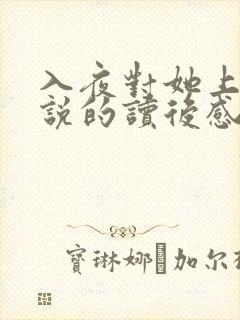 入夜對她上
説的讀後感
寶琳娜·加尔